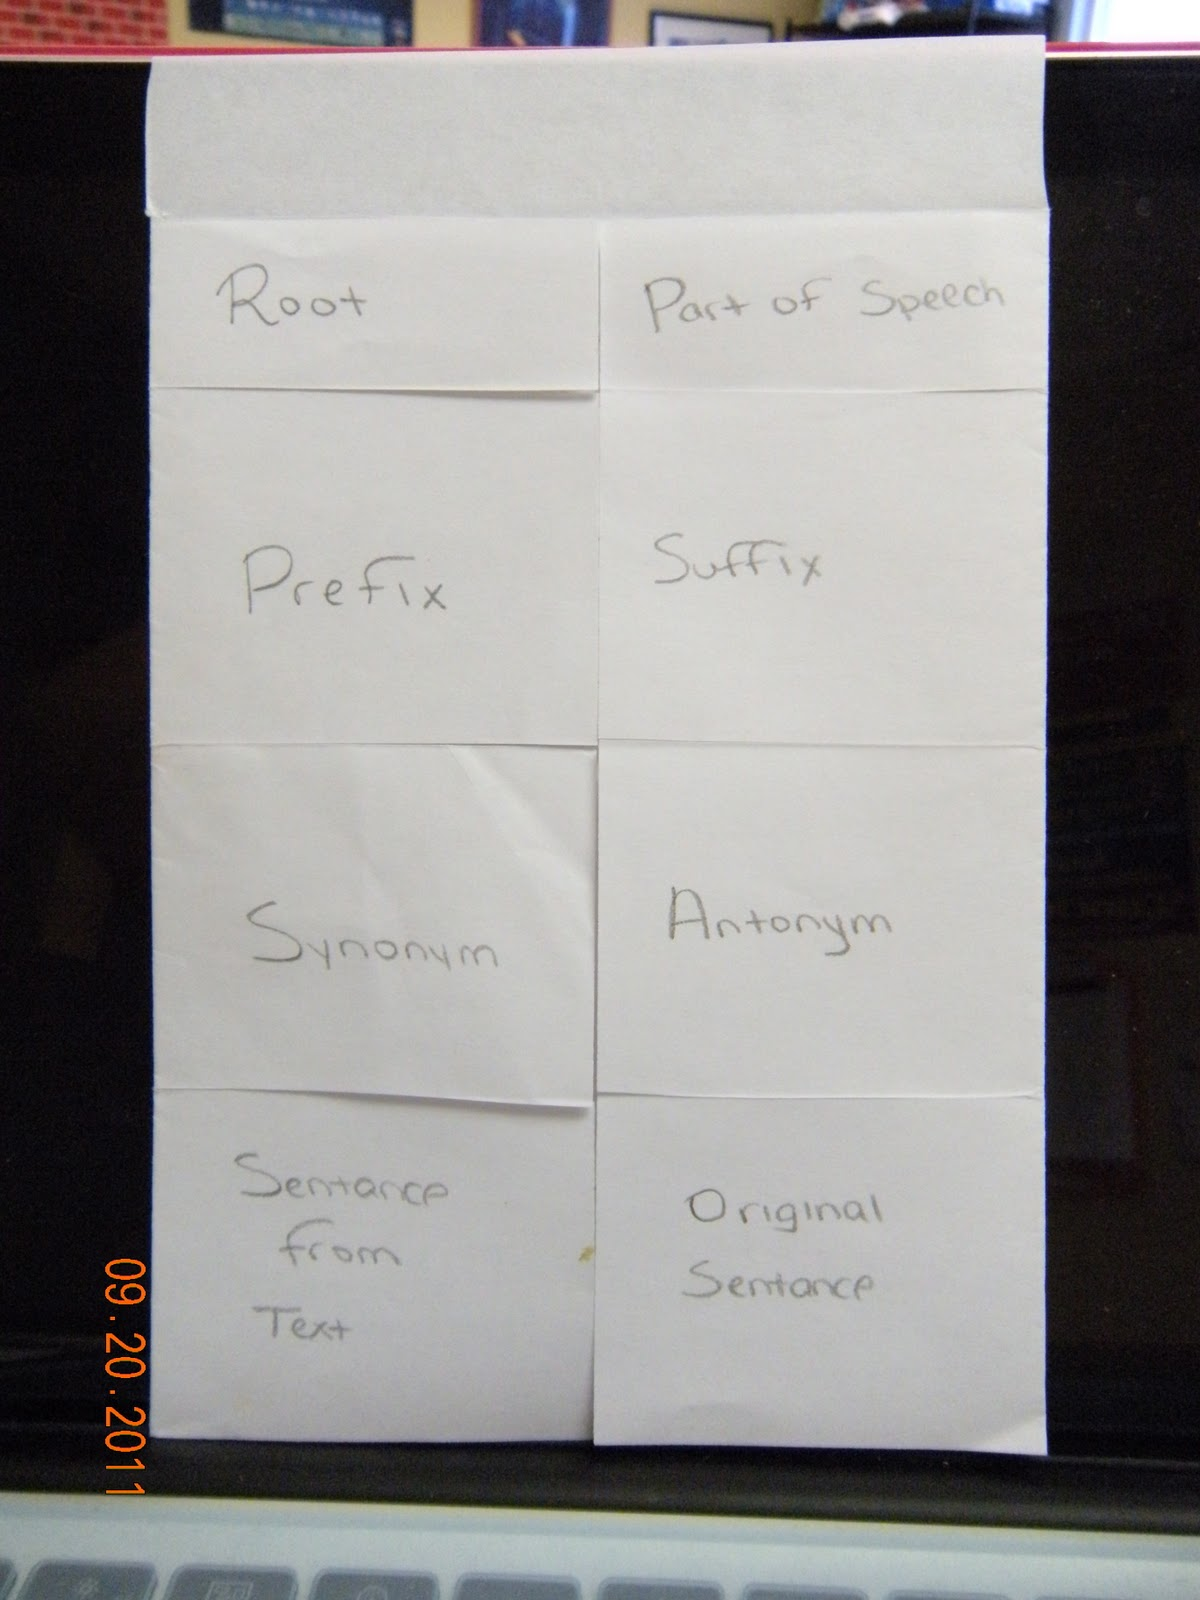 Root
Part of Speech
Prefix
Suffix
Synonym
Antonym
Sentance
from
Text
Original
Sentance
09.20.2011